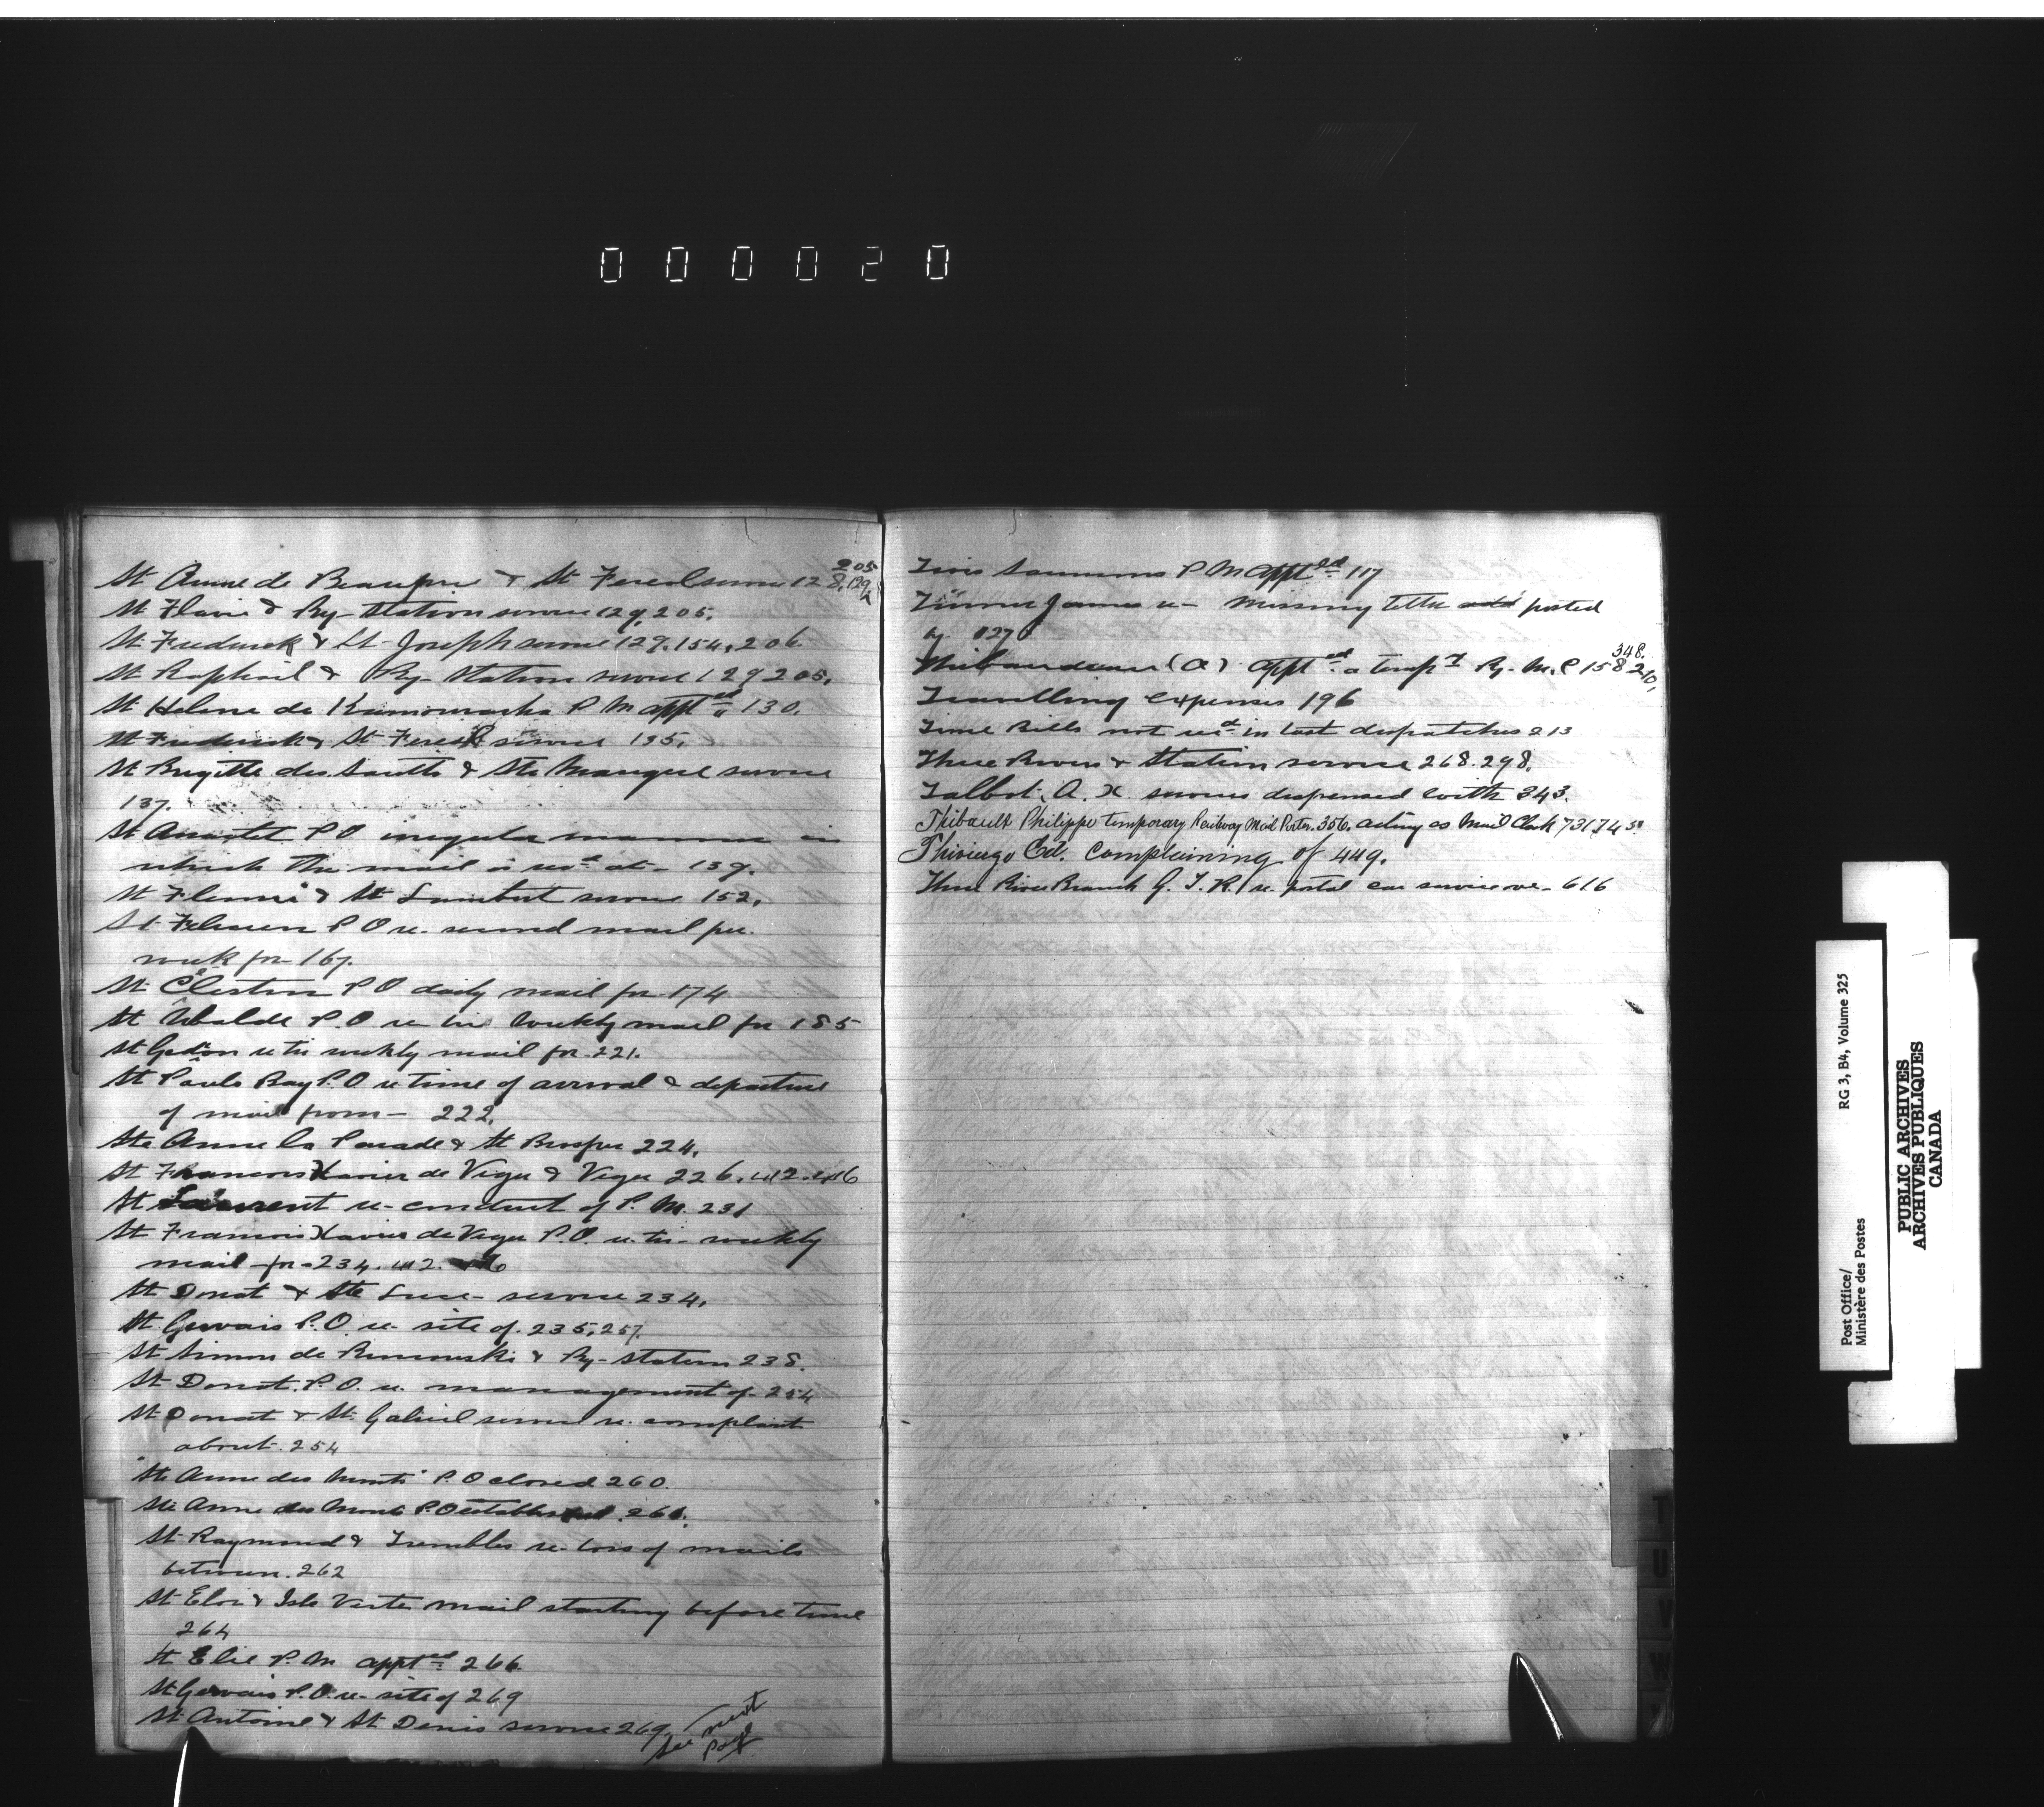 000020
205
St Anne de Beaupre & St Fereol service 128, 129
St Flavie & Ry Station service 129, 205.
St Frederick & St Joseph service 129, 154, 206.
St Raphail & Ry Station service 129 205.
St Helene de Kamouraska P M apptd 130.
St Frederick & St Fereol service 135.
St Brigitte des Saults & Ste Monique service
137.
St Anaclet P O irregular manner in
which the mail is recd at - 139.
St & St Lambert service 152.
St Felicien P O re second mail per
week for 167.
St Celestin P O daily mail for 174
St Ubalde P.O re tri weekly mail for 185
St Gedeon re tri weekly mail for 221.
St Pauls Bay P.O re time of arrival & departure
of mail from - 222.
Ste Anne la Perade & St Prosper 224.
St Francois Xavier de Viger & Viger 226. 412. 416
St Laurent re conduct of P.M. 231
St Francois Xavier de Viger P.O. re tri-weekly
mail for 234. 412.
St Donat & Ste Luce service 234.
St Gervais P.O. re site of 235, 257.
St Simon de Rimouski & Ry station 238.
St Donat P.O. re management of 254
St Donat & St Gabriel service re complaint
about 254
"Ste Anne des Monts" P.O closed 260.
Ste Anne des Monts P.O established 261.
St Raymond & Trembles re loss of mails
between 262
St Eloi & Isle Verte mail starting before time
264
St Elie P.M apptd 266
St Gervais P.O. re site of 269
St Antoine & St Denis service 269.
See next page
P M apptd 117
James re - Missing letter posted
by 027
348.
Thibaudeau (A) apptd a tempy Ry. M. C 158 210,
Travelling expenses 196
Time Bills not recd in last dispatches 213
Three Rivers & Station service 268. 298.
Talbot, A. X. services dispensed with 343.
Thibault Philippe temporary Railway Mail Porter. 356. acting as Mail Clerk 731, 745.
Thivierge Ed. Complaining of 449.
Three River Branch G. T. R. re postal car service over 616
T
U
V
W
Post Office/
Ministère des Postes
RG 3, B4, Volume 325
PUBLIC ARCHIVES
ARCHIVES PUBLIQUES
CANADA